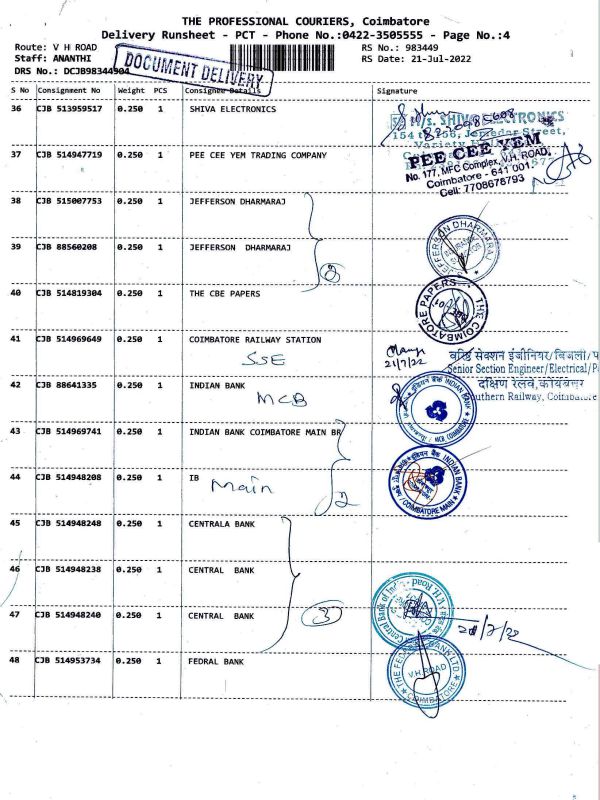 THE PROFESSIONAL COURIERS, Coimbatore
Delivery Runsheet - PCT - Phone No.:0422-3505555 - Page No.:4
Route: V H ROAD RS No.: 983449
Staff: ANANTHI RS Date: 21-Jul-2022
DRS No.: DCJB98344904
DOCUMENT DELIVERY
S No Consignment No Weight PCS Consignee Details Signature
36 CJB 513959517 0.250 1 SHIVA ELECTRONICS
M/s. SHIVA ELECTRONICS
37 CJB 514947719 0.250 1 PEE CEE YEM TRADING COMPANY
PEE CEE YEM
No. 177, MFC Complex, V.H. ROAD,
Coimbatore - 641 001.
Cell: 7708678793
38 CJB 515007753 0.250 1 JEFFERSON DHARMARAJ
39 CJB 88560208 0.250 1 JEFFERSON DHARMARAJ
2
JEFFERSON DHARMARAJ
40 CJB 514819304 0.250 1 THE CBE PAPERS
THE COIMBATORE PAPERS
41 CJB 514969649 0.250 1 COIMBATORE RAILWAY STATION
SSE
21/7/22
वरिष्ठ सेक्शन इंजीनियर/बिजली/
Senior Section Engineer/Electrical/P
दक्षिण रेलवे, कोयंबत्तूर
Southern Railway, Coimbatore
42 CJB 88641335 0.250 1 INDIAN BANK
MCB
INDIAN BANK
43 CJB 514969741 0.250 1 INDIAN BANK COIMBATORE MAIN BR
44 CJB 514948208 0.250 1 IB
Main
2
इंडियन बैंक INDIAN BANK
COIMBATORE MAIN
45 CJB 514948248 0.250 1 CENTRALA BANK
46 CJB 514948238 0.250 1 CENTRAL BANK
47 CJB 514948240 0.250 1 CENTRAL BANK
3
Central Bank of India V.H. Road
21/7/22
48 CJB 514953734 0.250 1 FEDRAL BANK
THE FEDERAL BANK LTD.
V.H. ROAD
COIMBATORE